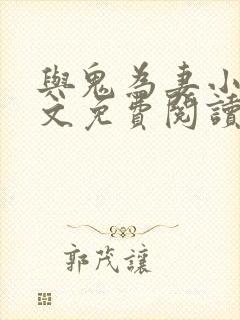 與鬼為妻小
文免費閱讀
郭茂讓